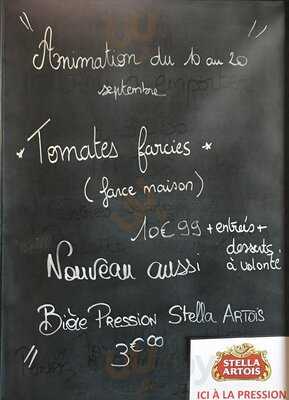 Animation du 10 au 20
septembre
* Tomates farcies *
(farce maison)
10€99 + entrées +
desserts
à volonté
Nouveau aussi
Bière Pression Stella Artois
3€00
STELLA
ARTOIS
ICI À LA PRESSION